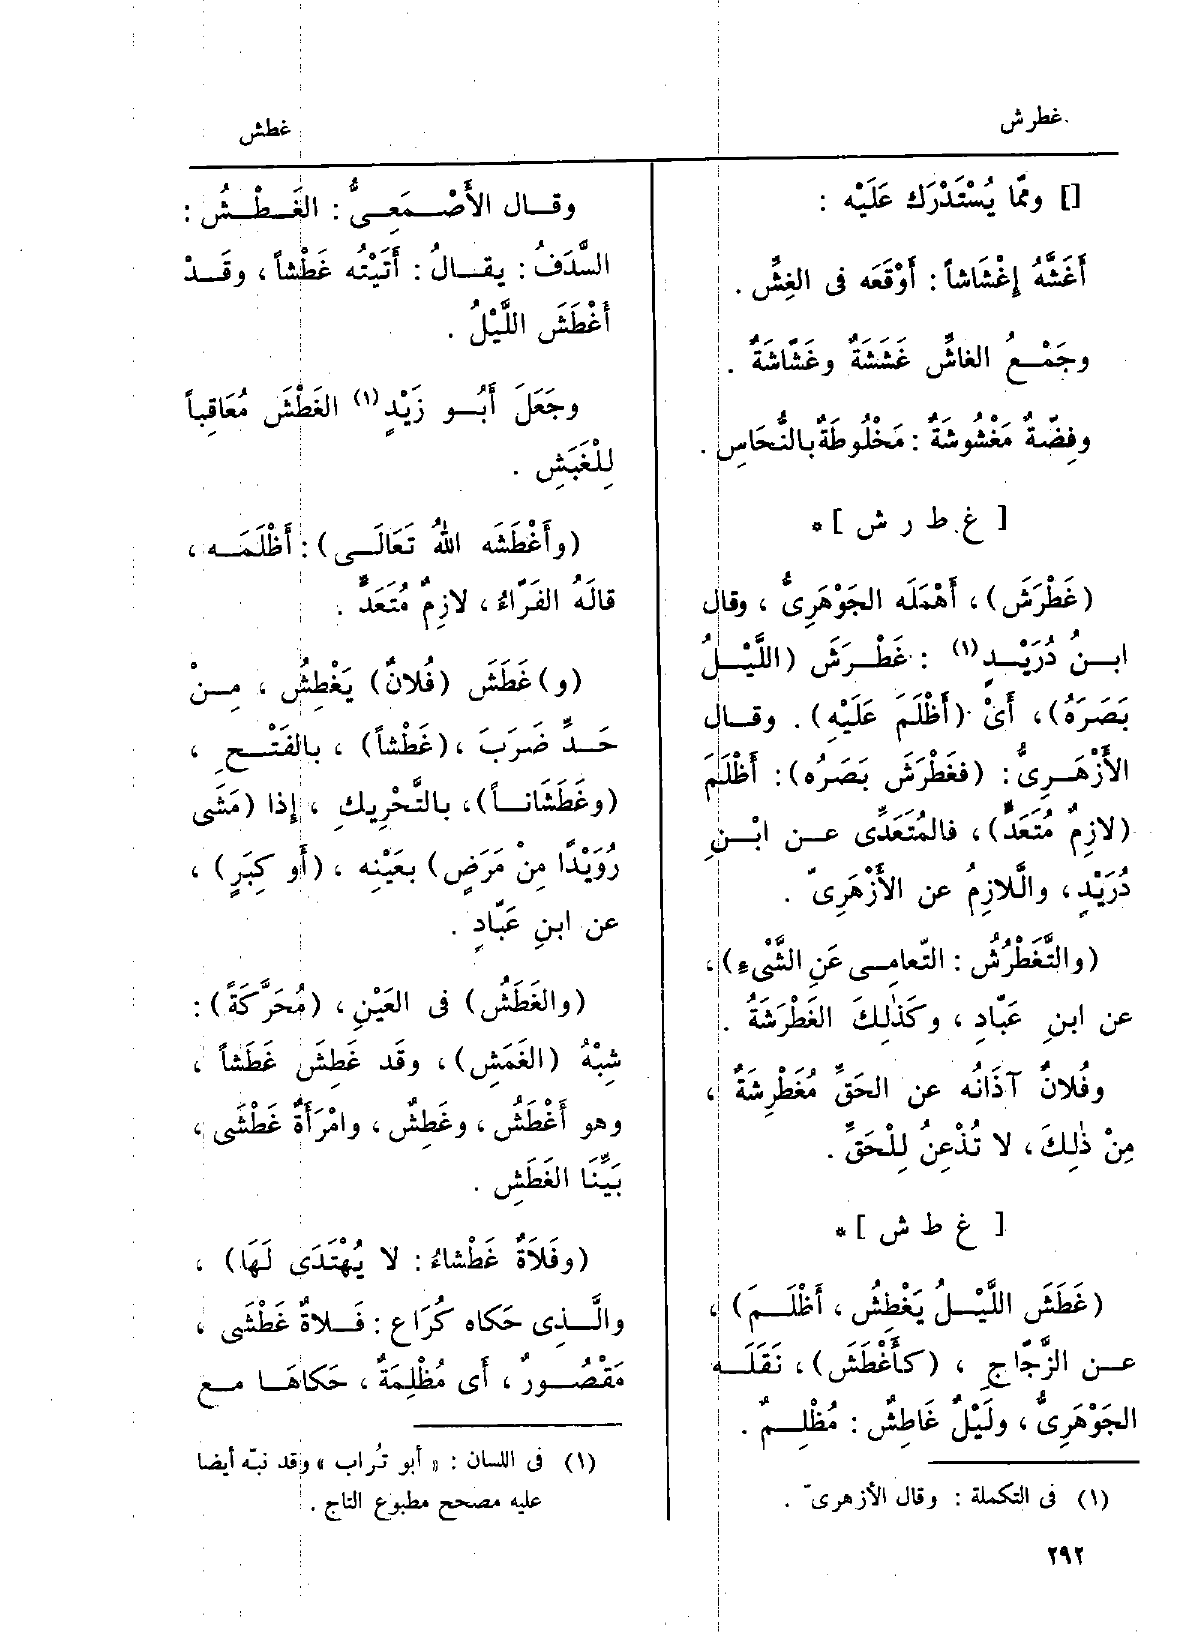 غطرش
غطش
[] وممّا يُسْتَدْرَك عَلَيْه :
أَغَشَّهُ إِغْشَاشاً : أَوْقَعَه فى الغِشِّ .
وجَمْعُ الغاشِّ غَشَشَةٌ وغَشَّاشَةٌ .
وفِضّةٌ مَغْشُوشَةٌ : مَخْلُوطَةٌ بالنُّحَاسِ .
[ غ ط ر ش ] *
(غَطْرَشَ) ، أَهْمَلَه الجَوْهَرِىُّ ، وقال
ابنُ دُرَيْدٍ (١) : غَطْرَشَ (اللَّيْلُ
بَصَرَهُ) ، أَىْ (أَظْلَمَ عَلَيْهِ) . وقال
الأَزْهَرِىُّ : (فغَطْرَش بَصَرُه) : أَظْلَمَ
(لازِمٌ مُتَعَدٍّ) ، فالمُتَعَدِّى عن ابْنِ
دُرَيْدٍ ، والَّلازِمُ عن الأَزْهَرِىّ .
(والتَّغَطْرُشُ : التّعامِى عَنِ الشَّىْءِ) ،
عن ابنِ عَبّادٍ ، وكَذٰلِكَ الغَطْرَشَةُ .
وفُلانٌ آذَانُه عن الحَقِّ مُغَطْرِشَةٌ ،
مِنْ ذٰلِكَ ، لا تُذْعِنُ لِلْحَقِّ .
[ غ ط ش ] *
(غَطَشَ اللَّيْلُ يَغْطِشُ ، أَظْلَمَ) ،
عن الزَّجّاجِ ، (كأَغْطَشَ) ، نَقَلَه
الجَوْهَرِىُّ ، ولَيْلٌ غَاطِشٌ : مُظْلِمٌ .
(١) فى التكملة : وقال الأزهرىّ .
وقال الأَصْمَعِىُّ : الغَطْشُ :
السَّدَفُ : يقالُ : أَتَيْتُه غَطْشاً ، وقَدْ
أَغْطَشَ اللَّيْلُ .
وجَعَلَ أَبُو زَيْدٍ (١) الغَطْشَ مُعَاقِباً
لِلْغَبَشِ .
(وأَغْطَشَه اللهُ تَعَالَى) : أَظْلَمَه ،
قالَهُ الفَرّاءُ ، لازِمٌ مُتَعَدٍّ .
(و) غَطَشَ (فُلانٌ) يَغْطِشُ ، مِنْ
حَدِّ ضَرَبَ ، (غَطْشاً) ، بالفَتْحِ ،
(وغَطَشَاناً) ، بالتَّحْرِيكِ ، إِذا (مَشَى
رُوَيْدًا مِنْ مَرَضٍ) بعَيْنِه ، (أَو كِبَرٍ) ،
عن ابنِ عَبّادٍ .
(والغَطَشُ) فى العَيْنِ ، (مُحَرَّكَةً) :
شِبْهُ (الغَمَشِ) ، وقَد غَطِشَ غَطَشاً ،
وهو أَغْطَشُ ، وغَطِشٌ ، وامْرَأَةٌ غَطْشَى ،
بَيِّنَا الغَطَشِ .
(وفَلَاةٌ غَطْشاءُ : لا يُهْتَدَى لَهَا) ،
والَّذِى حَكاه كُرَاع : فَلاةٌ غَطْشَى ،
مَقْصُورٌ ، أَى مُظْلِمَةٌ ، حَكاهَا مع
(١) فى اللسان : « أبو تُراب » وقد نبّه أيضا
عليه مصحح مطبوع التاج .
٢٩٢